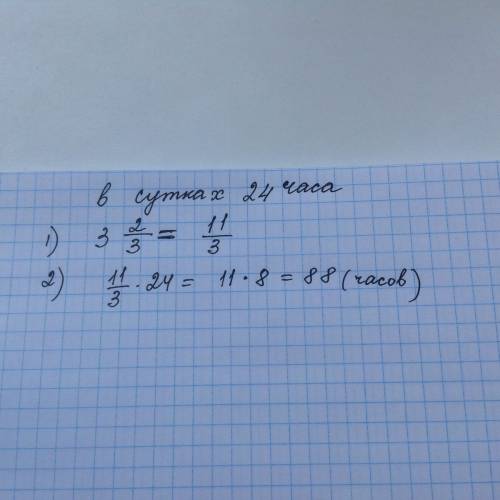 в сутках 24 часа
1) 3 2/3 = 11/3
2) 11/3 · 24 = 11 · 8 = 88 (часов)